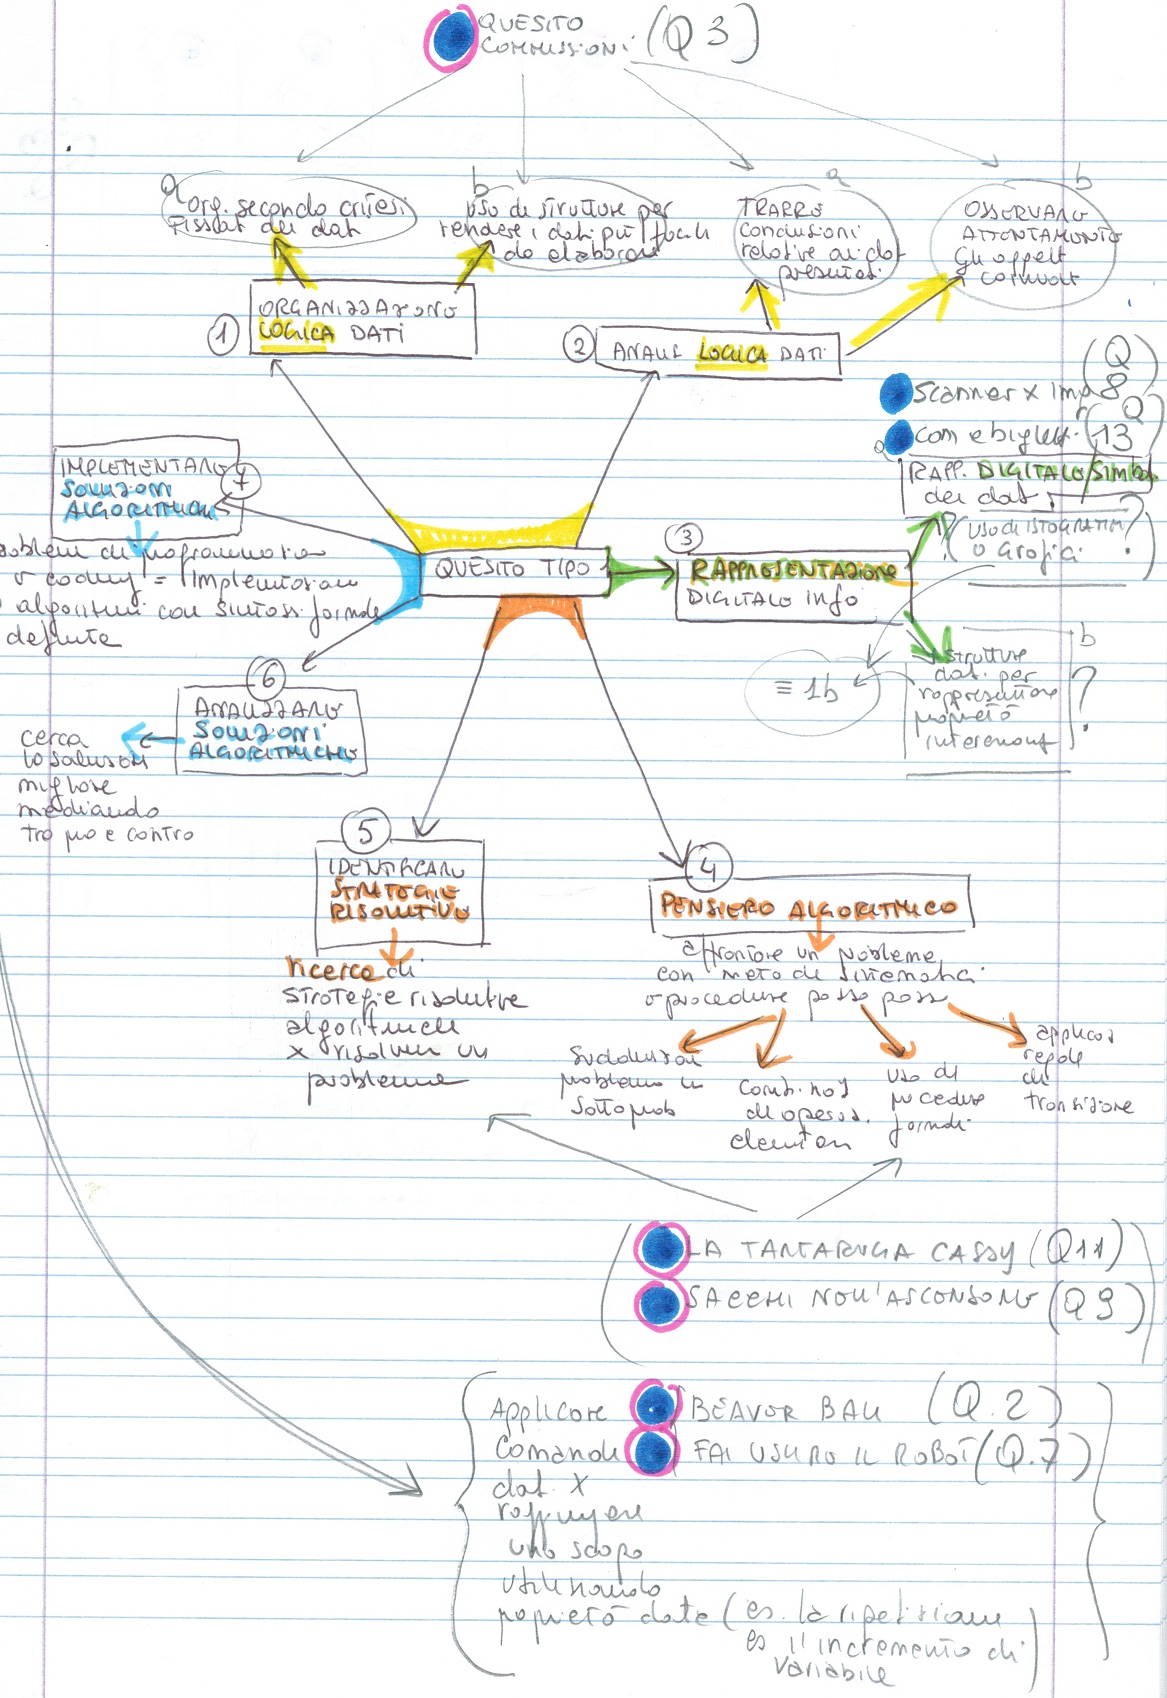 QUESITO
COMMISSIONI (Q3)
a
org. secondo criteri
fissat dei dati
b
uso di strutture per
rendere i dati più facili
da elaborare
a
TRARRE
conclusioni
relative ai dat
presentati
b
OSSERVARE
ATTENTAMENTE
Gli oggetti
coinvolti
1
ORGANIZZAZIONE
LOGICA DATI
2
ANALISI LOGICA DATI
(Q
Scanner x imm 8)
Com e bigliett. (Q 13
a
RAPP. DIGITALE/Simbol.
dei dati
(USO DI ISTOGRAMMI
o Grafici ?
7
IMPLEMENTARE
SOLUZIONI
ALGORITMICHE
problemi di programmazione
o coding = implementare
algoritmi con sintassi formale
definite
QUESITO TIPO
3
RAPPRESENTAZIONE
DIGITALE INFO
≡ 1b
b
strutture
dati per
rappresentare
proprietà
interessanti
?
6
ANALIZZARE
SOLUZIONI
ALGORITMICHE
cerca
la soluzione
migliore
mediando
tra pro e contro
5
IDENTIFICARE
STRATEGIE
RISOLUTIVE
ricerca di
strategie risolutive
algoritmiche
x risolvere un
problema
4
PENSIERO ALGORITMICO
affrontare un problema
con metodi sistematici
o procedure passo passo
Suddivisioni
problema in
Sottoprob
Combinaz
di operaz.
elementari
uso di
procedure
formali
applicaz
regole
di
transizione
LA TARTARUGA CASSY (Q11)
SACCHI NELL'ASCENSORE (Q9)
Applicare BEAVER BALL (Q.2)
Comandi FAI USCIRE IL ROBOT (Q.7)
dati x
raggiungere
uno scopo
utilizzando
proprietà date (es. la ripetizione
es l'incremento di
variabile